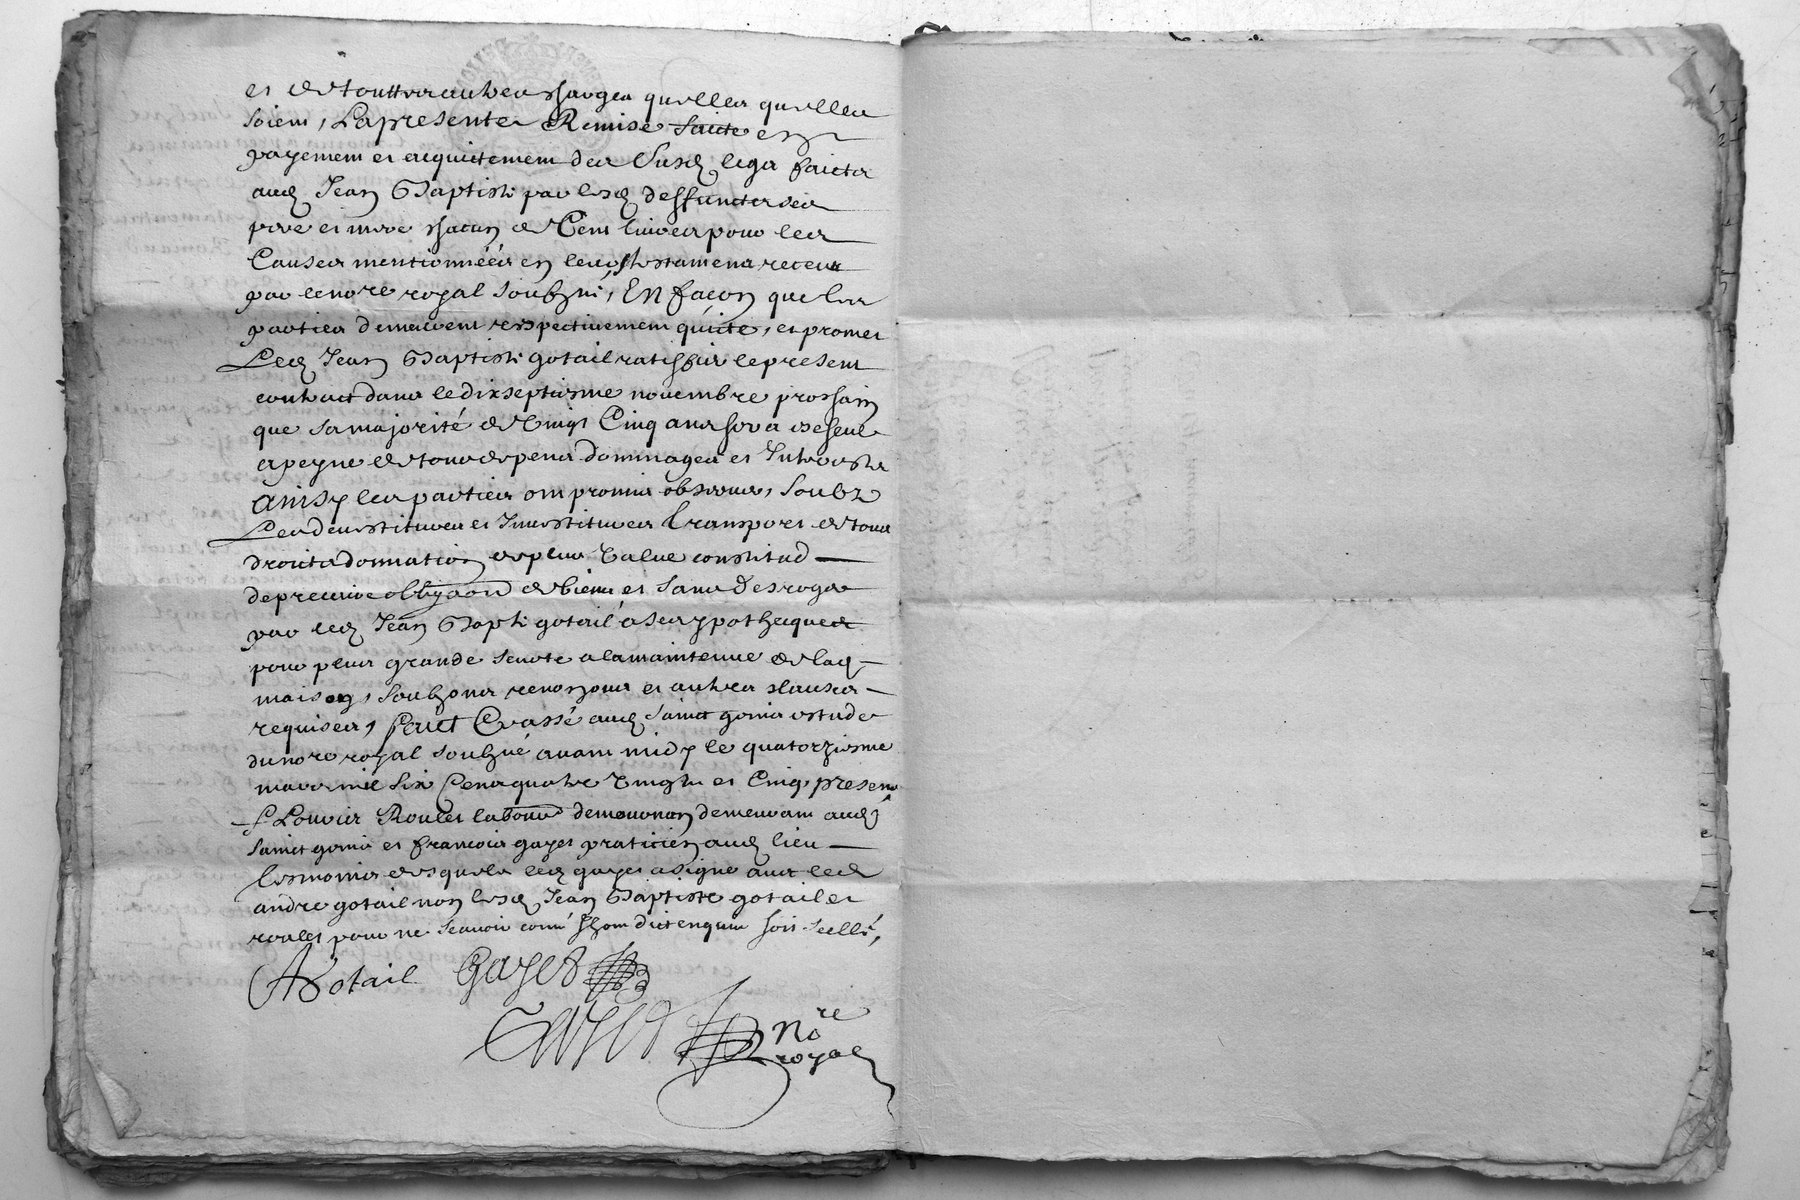 et de touttes autres charges quelles quelles
soient, La presente Remise faicte en
payement et acquictement des susd legs faictz
aud Jean Baptiste par lesd deffunctz ses
pere et mere chacun de Cent livres pour les
Causes mentionnéés en leurs testamens receus
par le no.re royal soubzné, En façon que les
parties demeurent respectivement quicte, et promet
Led Jean Baptiste gotail ratiffier le present
contract dans le dixseptiesme novembre prochain
que sa majorité de Vingt Cinq ans sera
a peyne de tous despens dommages et Interestz
Ainsy les parties ont promis observer, Soubz
Les devestitures et Investitures transport de tous
droictz donnation de plus Value constitud
de precaire obligaon de biens et sans desroger
par led Jean Bapte gotail a ses ypothecques
pour plus grande seurte a la maintenue de lad
maison, soubzons renonons et autres clauses
requises, Faict et Passé aud Sainct genis estude
du no.re royal soubzné avant midy le quatorziesme
mars mil six Cens quatre Vingtz et Cinq, presens
s.r Louis Roulet labour demeurant aud
Sainct genis et francois gayet praticien aud lieu
tesmoins desquels led gayet a signe avec led
andre gotail non lesd Jean Baptiste gotail et
roulet pour ne scavoir comme ilz ont dict enquis soit scellé,
A Gotail Gayet
Gayet No.re
royal